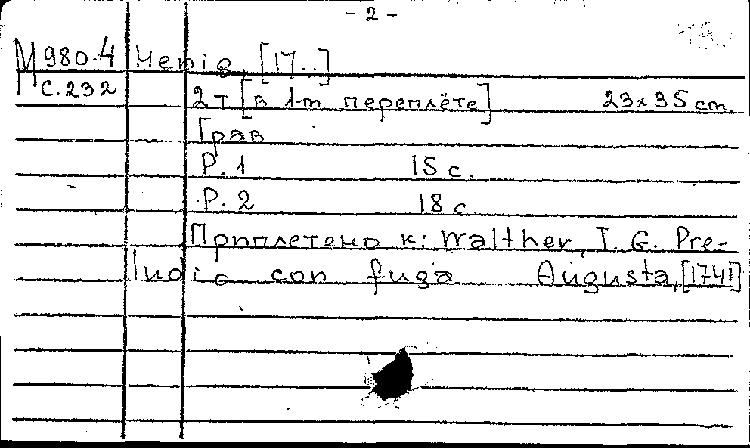 - 2 -
М 980-4 Henig, [17..]
С.232
2 т [в 1-т переплёте] 23x35 cm.
Грав
P. 1 15 с.
P. 2 18 с
Приплетено к: Walther, I. G. Pre-
ludio con fuga Augusta, [1741]